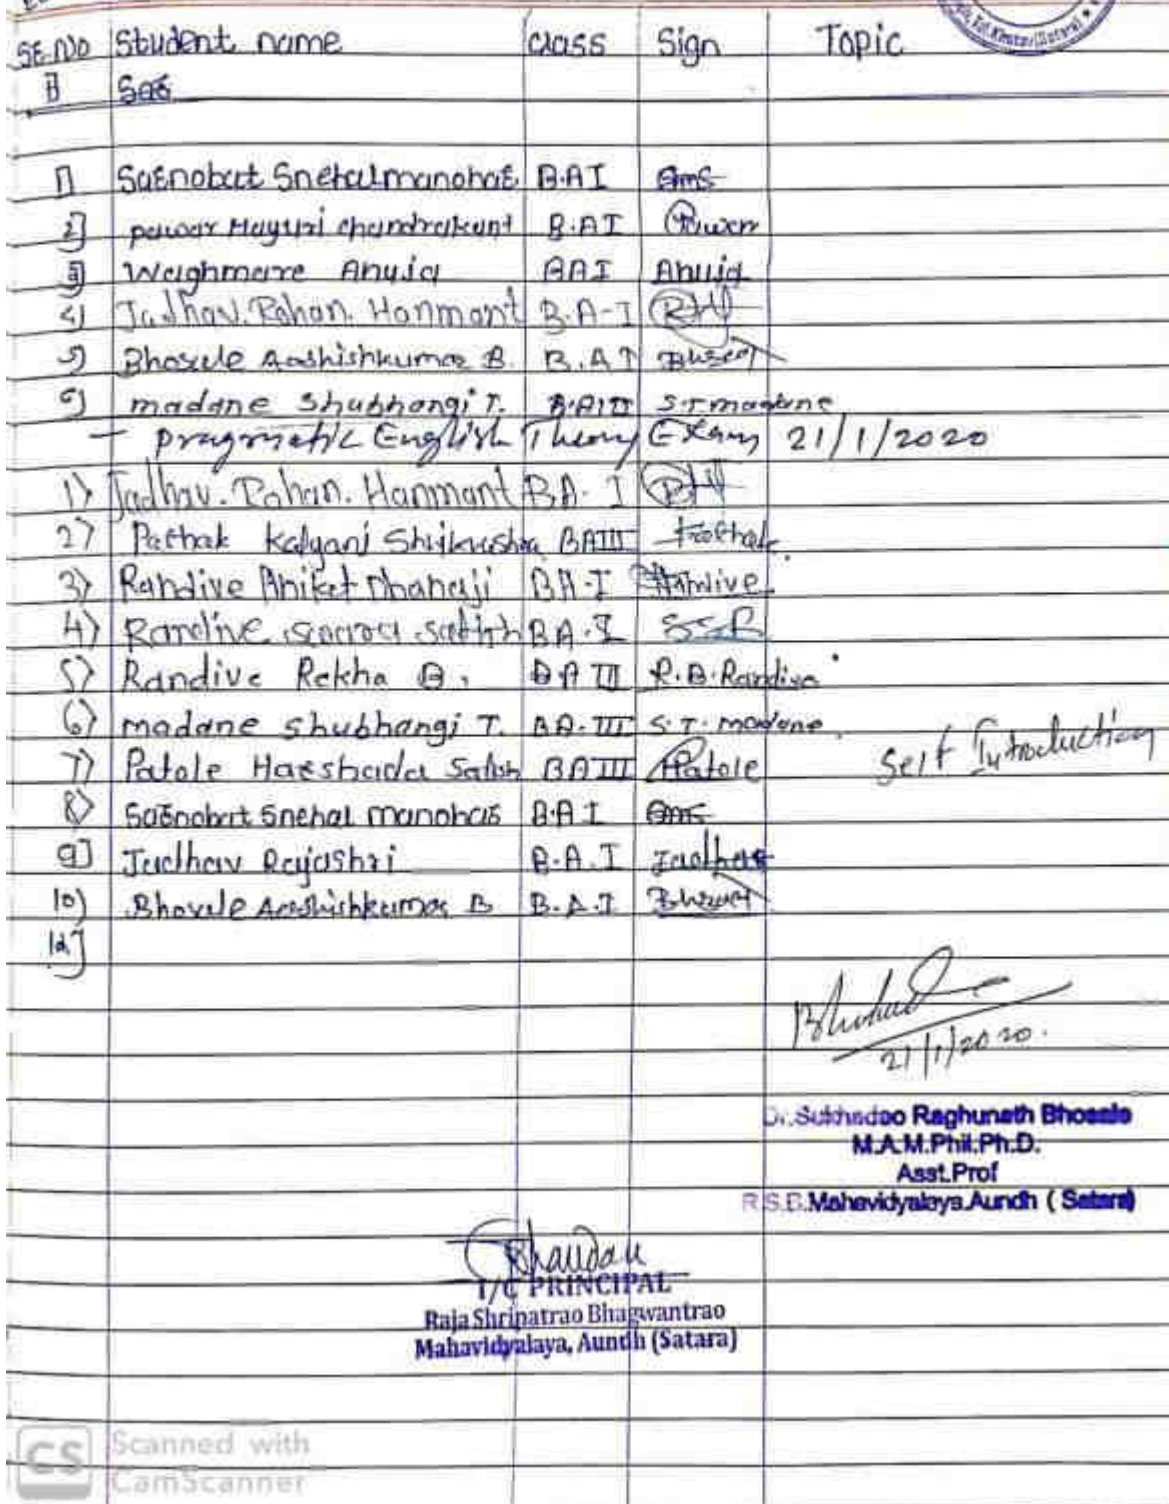 SE.NO Student name Class Sign Topic
1]
1] Sarnobat Snehalmanohar B.A I Sms
2] pawar Mayuri chandrakant B.A I Pawar
3] Waghmare Anuja B A I Anuja
4) Jadhav. Rohan. Hanmant B.A-I RHJ
5) Bhosale Aashishkumar B. B.A I
6) madane shubhangi T. B.A III S.T madane
- pragmatic English Theory Exam 21/1/2020
1) Jadhav. Rohan. Hanmant BA-I RHJ
2) Pathak Kalyani Shrikrushna BAIII Pathak
3) Randive Aniket Dhanaji BA-I Randive
4) Randive satish BA-I SSR
5) Randive Rekha B. BA III R.B.Randive
6) madane shubhangi T. BA-III S.T. madane
7) Patole Harshada Satish BA III Patole Self Introduction
8) Sarnobat Snehal manohar B.A I Sms
9] Jadhav Rajashri B.A.I Jadhav
10) Bhosale Aashishkumar B B.A.I
12]
21/1/2020.
Dr.Sukhadeo Raghunath Bhosale
M.A.M.Phil.Ph.D.
Asst.Prof
R.S.B.Mahavidyalaya.Aundh ( Satara)
I/C PRINCIPAL
Raja Shripatrao Bhagwantrao
Mahavidyalaya, Aundh (Satara)
CS Scanned with
CamScanner